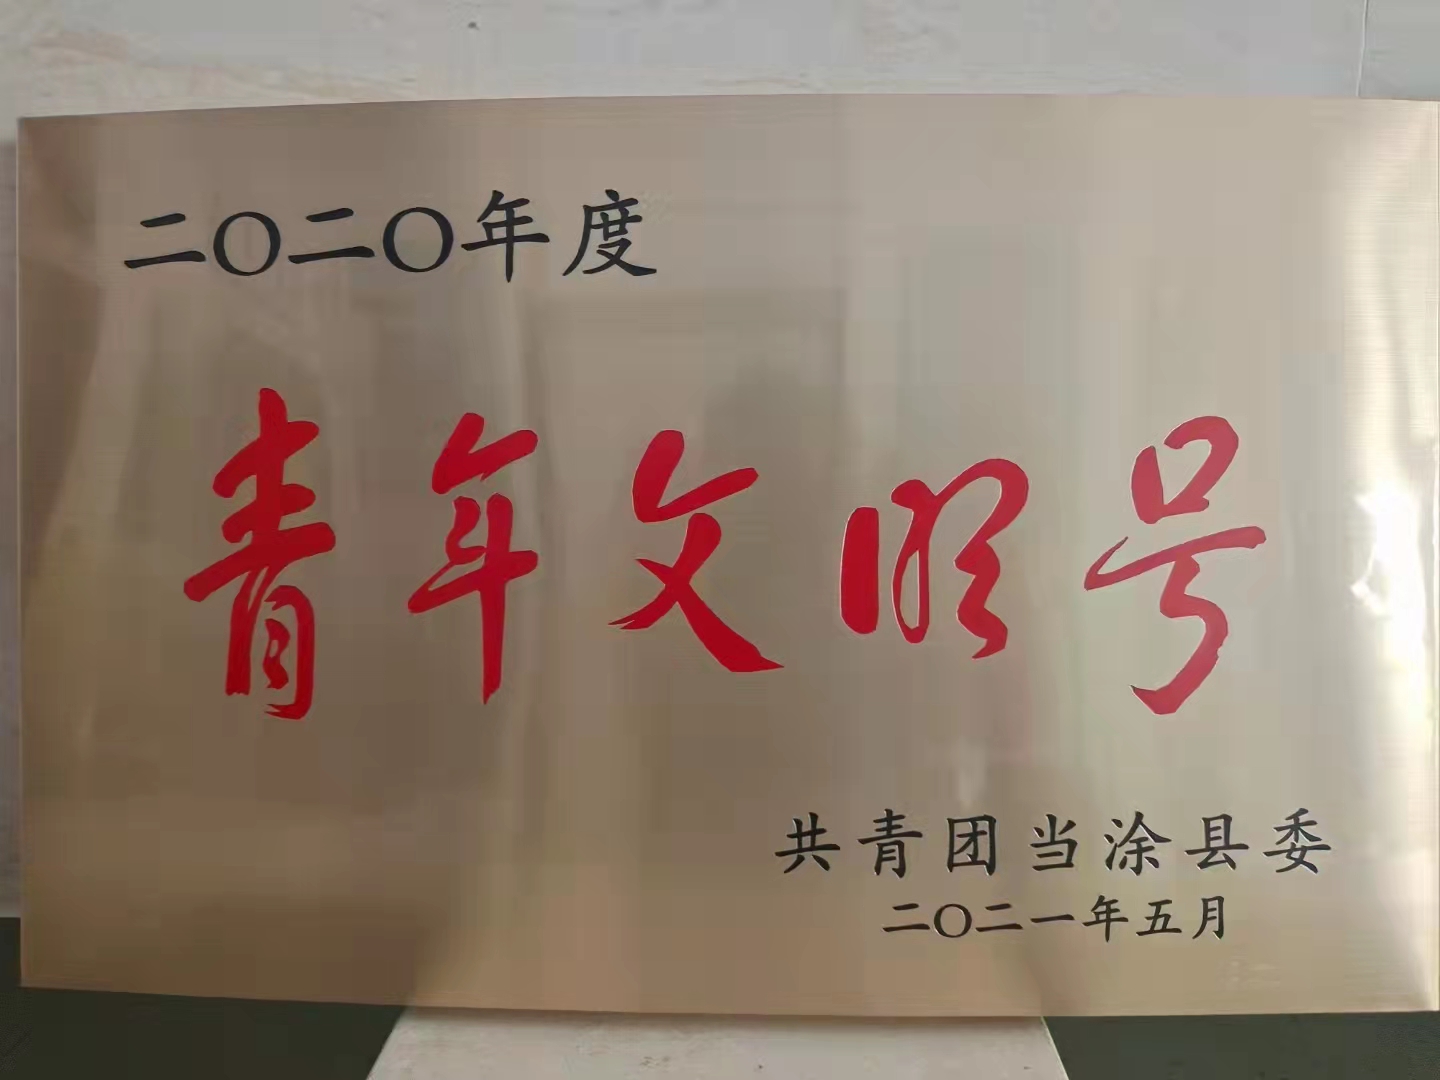 二〇二〇年度
青年文明号
共青团当涂县委
二〇二一年五月